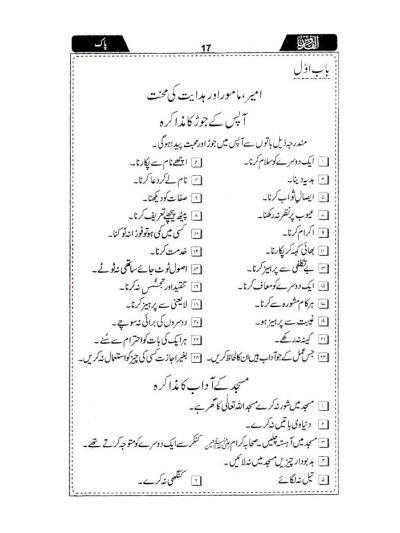 پاک 17 القادر
باب اوّل
امیر، مامور اور ہدایت کی محنت
آپس کے جوڑ کا مذاکرہ
مندرجہ ذیل باتوں سے آپس میں جوڑ اور محبت پیدا ہوگی۔
۱ ایک دوسرے کو سلام کرنا۔ ۲ اچھے نام سے پکارنا۔
۳ ہدیہ دینا۔ ۴ نام لے کر دعا کرنا۔
۵ ایصال ثواب کرنا۔ ۶ صفات کو دیکھنا۔
۷ عیوب پر نظر نہ رکھنا۔ ۸ پیٹھ پیچھے تعریف کرنا۔
۹ اکرام کرنا۔ ۱۰ کسی میں کمی ہو تو فوراً نہ ٹوکنا۔
۱۱ بھائی کہہ کر پکارنا۔ ۱۲ خدمت کرنا۔
۱۳ بے تکلفی سے پرہیز کرنا۔ ۱۴ اصول ٹوٹ جائے ساتھی نہ ٹوٹے۔
۱۵ ایک دوسرے کو معاف کرنا۔ ۱۶ تنقید اور تجسّس نہ کرنا۔
۱۷ ہر کام مشورہ سے کرنا۔ ۱۸ لایعنی سے پرہیز کرنا۔
۱۹ غیبت سے پرہیز ہو۔ ۲۰ دوسروں کی برائی نہ سوچے۔
۲۱ کینہ نہ رکھے۔ ۲۲ ہر ایک کی بات کو احترام سے سُنے۔
۲۳ جس عمل کے جو آداب ہیں ان کا لحاظ کریں۔ ۲۴ بغیر اجازت کسی کی چیز کو استعمال نہ کریں۔
مسجد کے آداب کا مذاکرہ
۱ مسجد میں شور نہ کرے مسجد اللہ تعالٰی کا گھر ہے۔
۲ دنیاوی باتیں نہ کرے۔
۳ مسجد میں آہستہ چلیں۔ صحابہ کرام کنکر سے ایک دوسرے کو متوجہ کرتے تھے۔
۴ بدبودار چیزیں مسجد میں نہ لائیں۔
۵ تیل نہ لگائے ۶ کنگھی نہ کرے۔